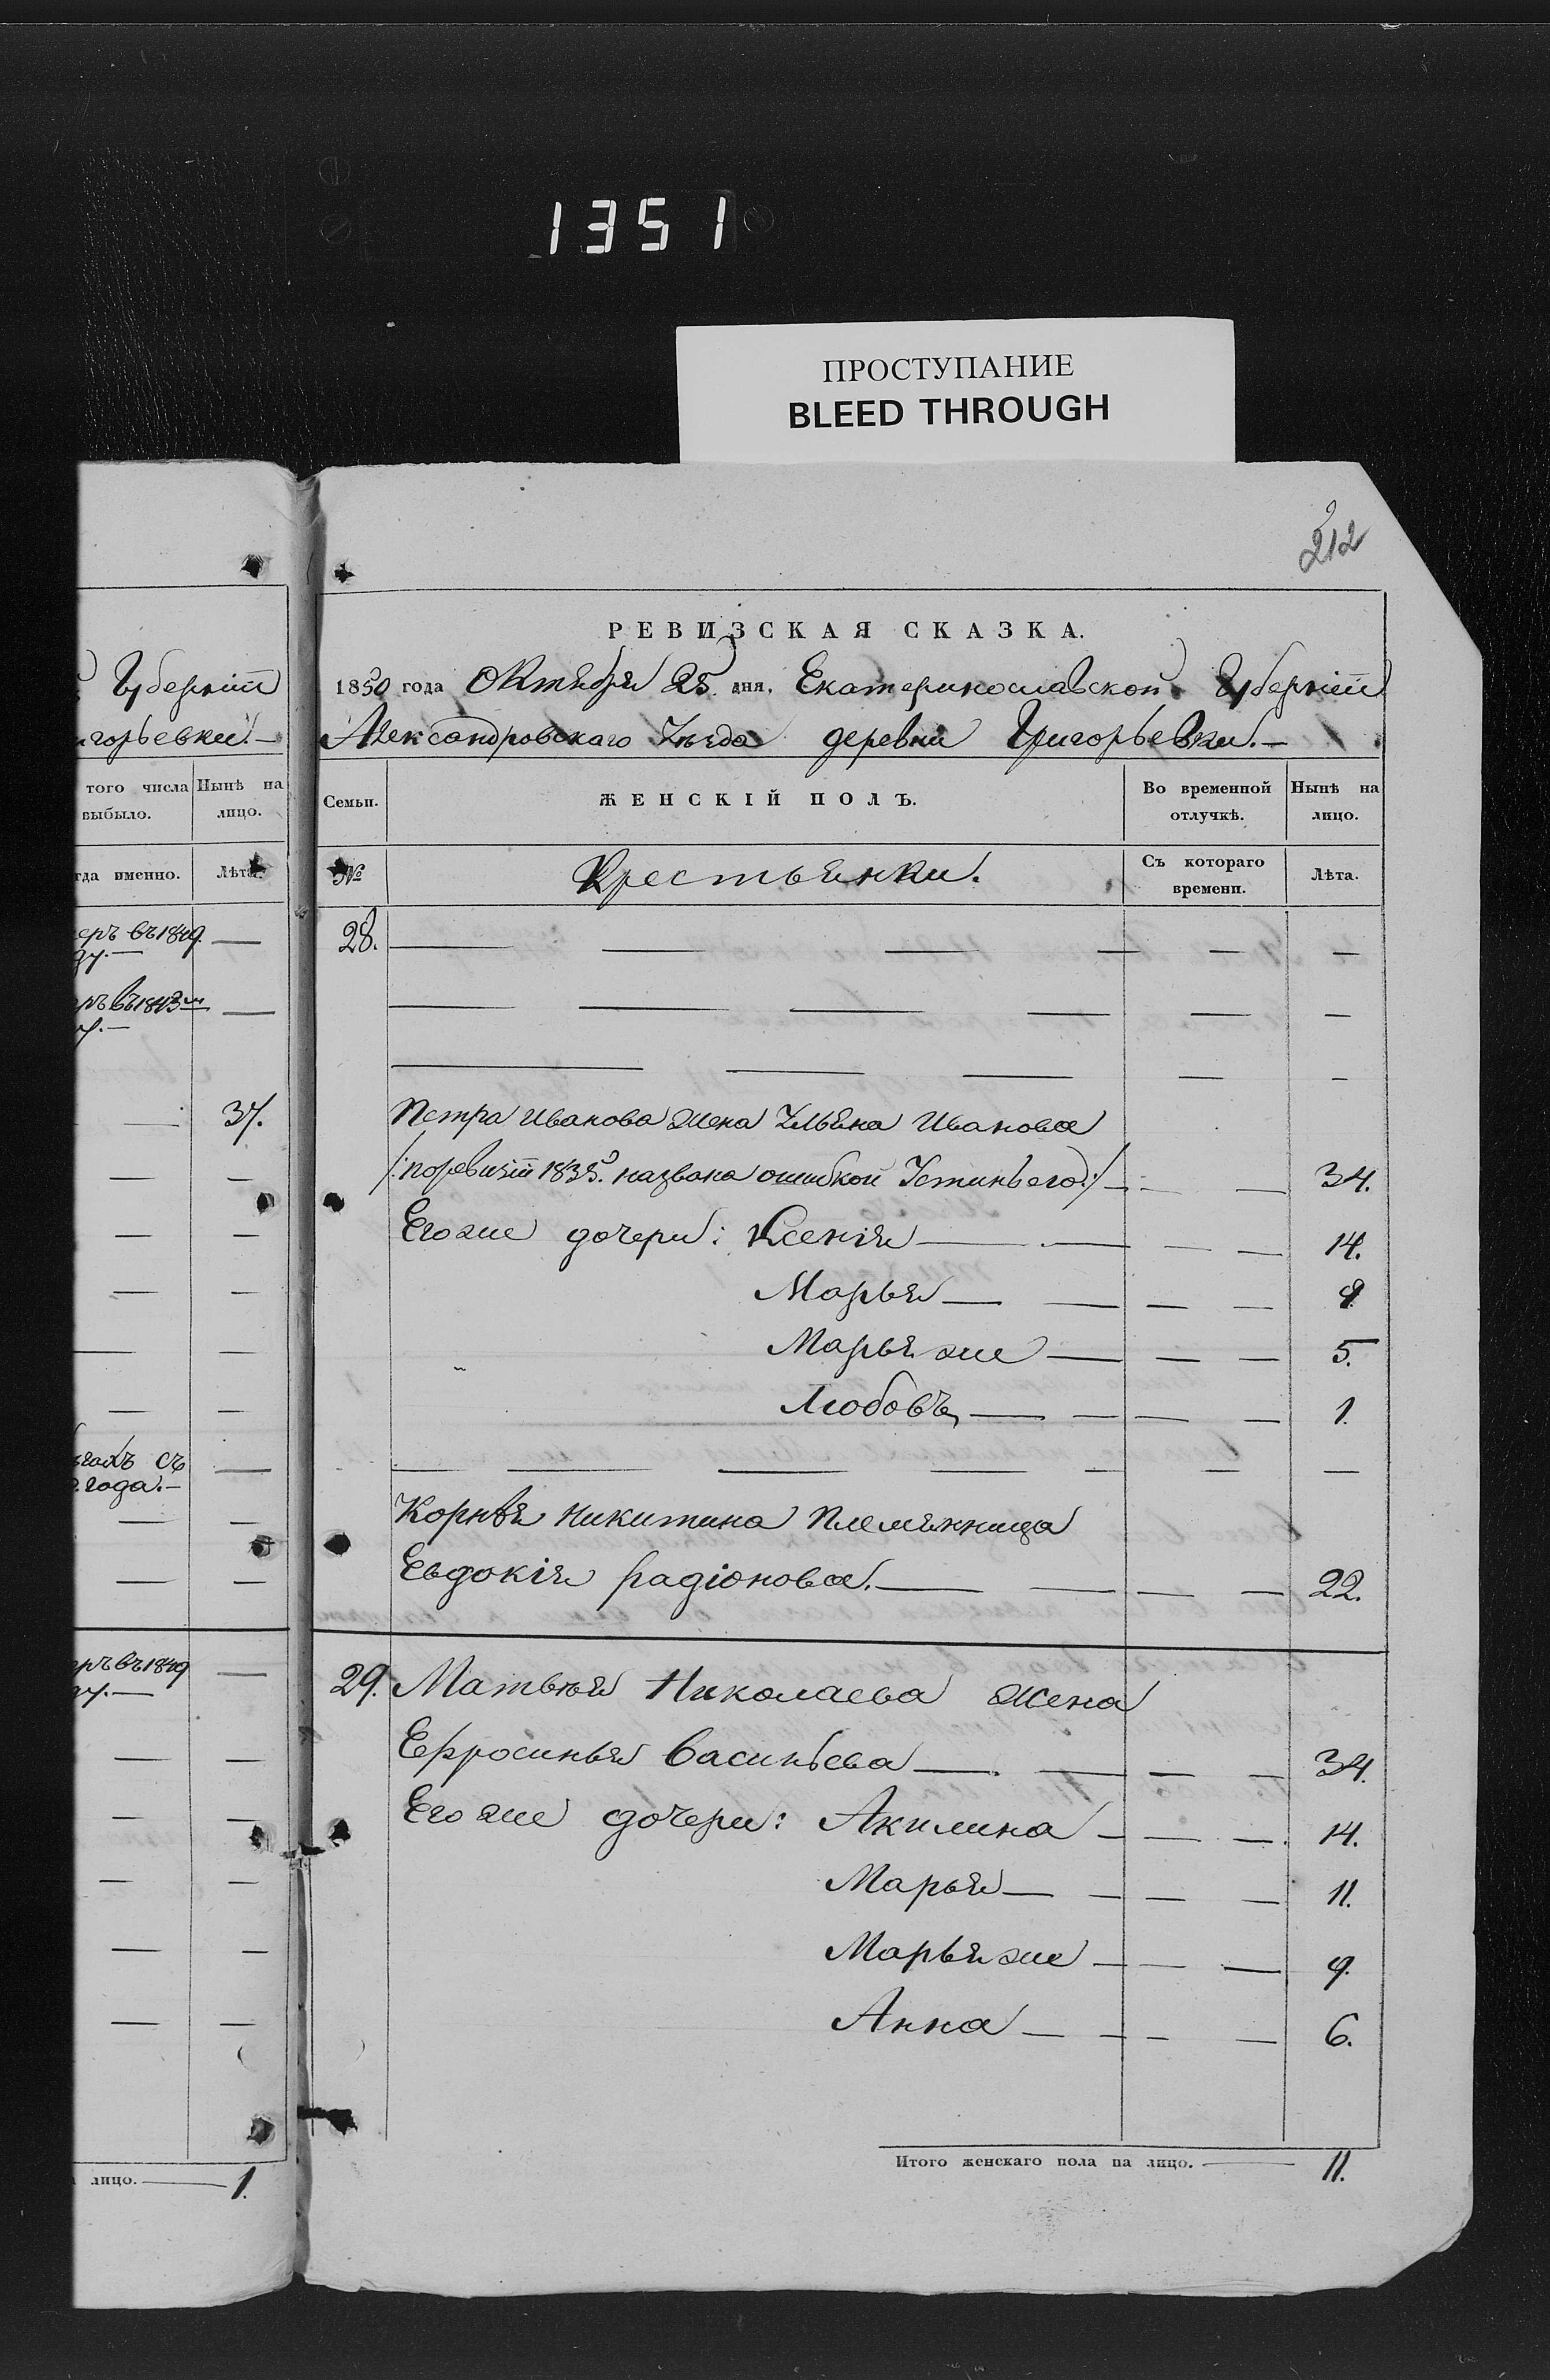 1351
ПРОСТУПАНИЕ
BLEED THROUGH
212
Губерніи
игорьевки.
того числа Нынѣ на
выбыло. лицо.
именно. Лѣта.
еръ въ 1849.
ду.
ръ въ 1843м
37.
съ
года.
еръ въ 1849
лицо. 1.
РЕВИЗСКАЯ СКАЗКА.
1850 года Октября 25 дня, Екатеринославской Губерніи
Александровскаго Уѣзда деревни Григорьевки.
Семьи. ЖЕНСКІЙ ПОЛЪ. Во временной отлучкѣ. Нынѣ на лицо.
№ Крестьянки. Съ котораго времени. Лѣта.
28.
Петра Иванова жена Ульяна Иванова
/:по ревизіи 1835. названа ошибкой Устиньею:/ 34.
Его же дочери: Ксенія 14.
Марья 9.
Марья же 5.
Любовъ 1.
Корнѣя Никитина племянница
Евдокія Радіонова. 22.
29. Матвѣя Николаева жена
Ефросинья Васильева 34.
Его же дочери: Акилина 14.
Марья 11.
Марья же 9.
Анна 6.
Итого женскаго пола на лицо. 11.